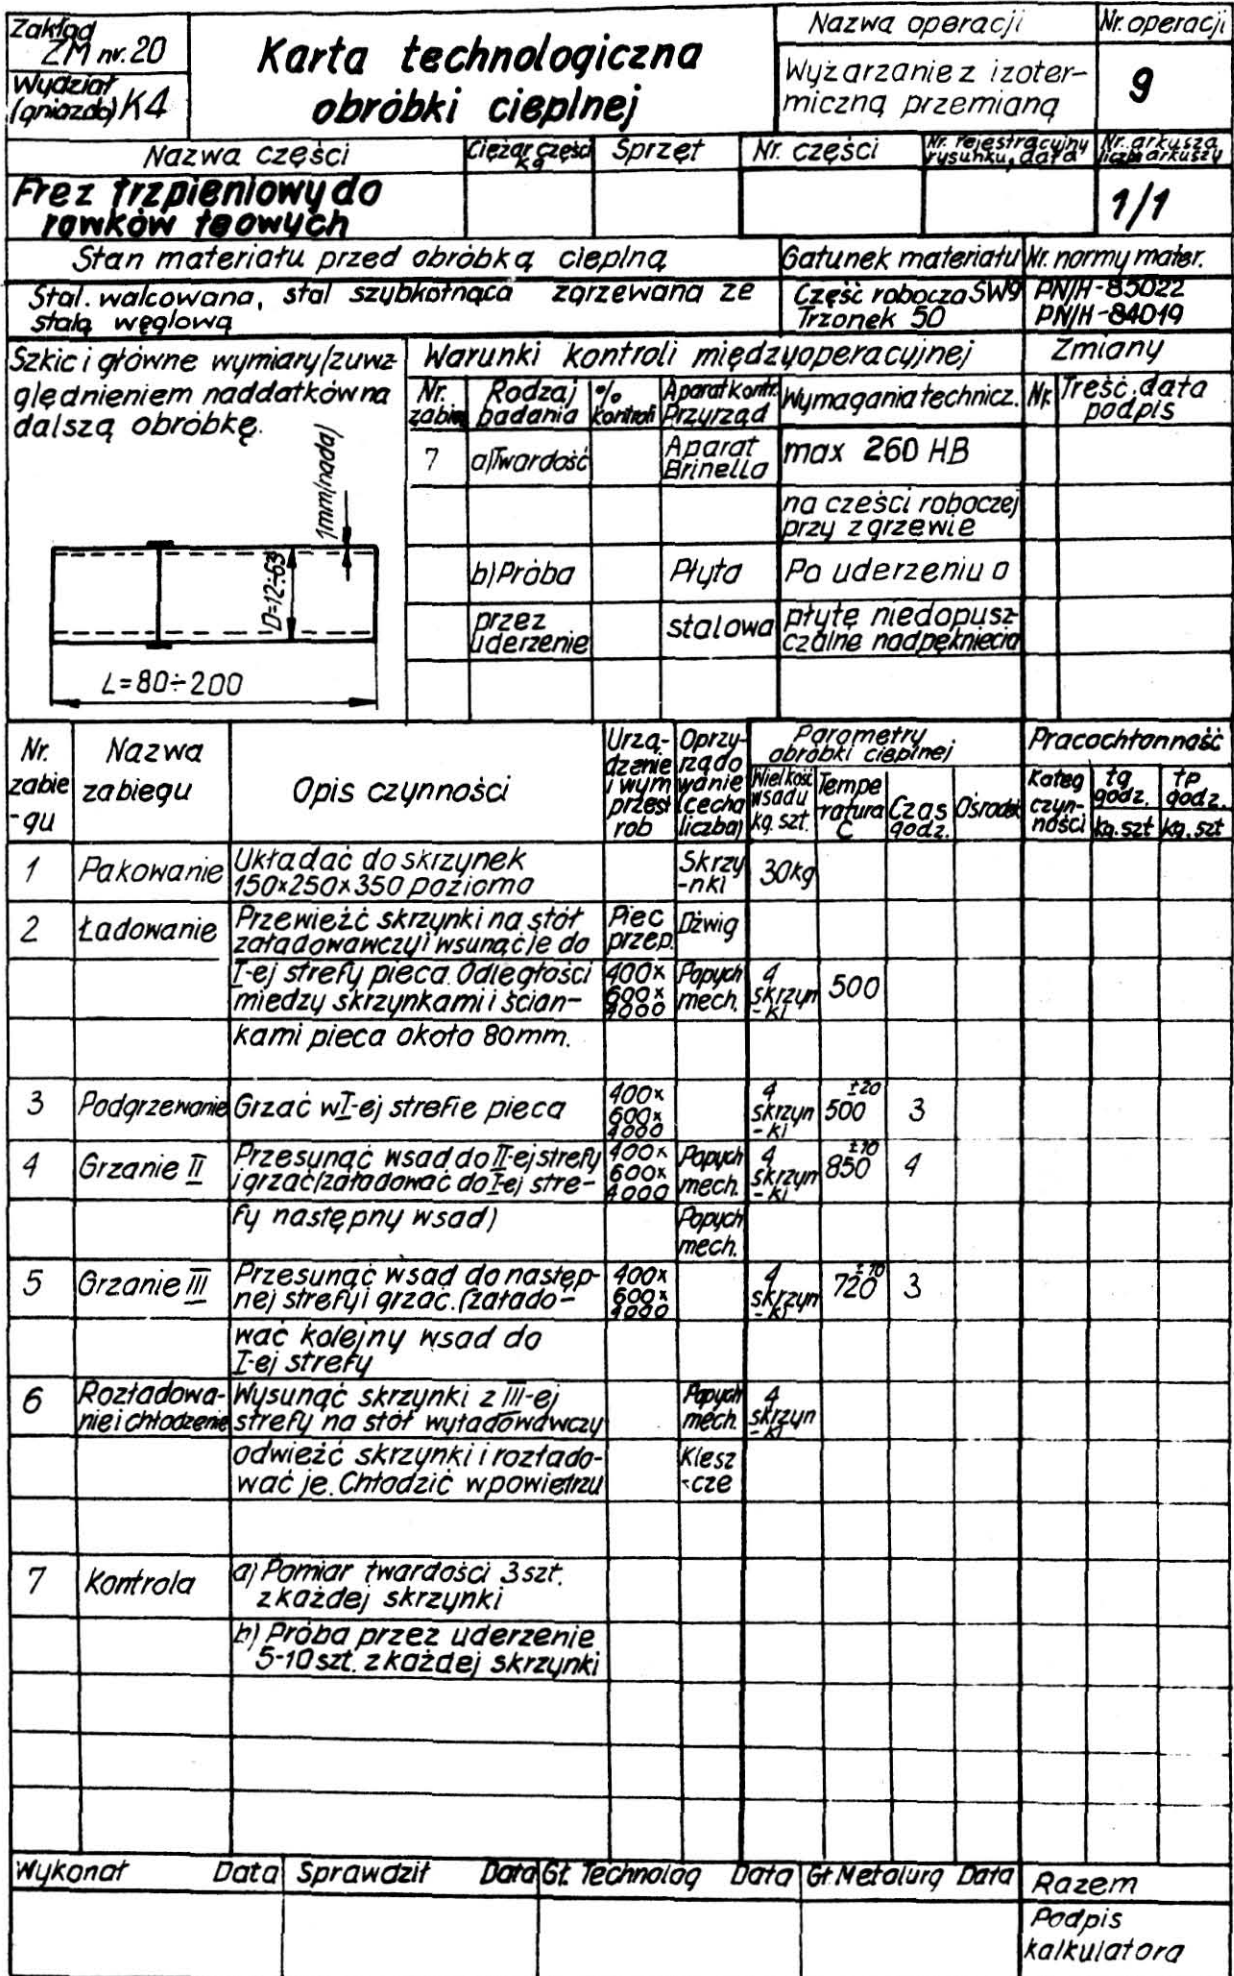 Zakład
ZM nr. 20
Wydział
(gniazdo) K4
Karta technologiczna
obróbki cieplnej
Nazwa operacji
Wyżarzanie z izoter-
miczną przemianą
Nr. operacji
9
Nazwa części
Ciężar części
kg
Sprzęt
Nr. części
Nr. rejestracyjny
rysunku, data
Nr. arkusza
liczba arkuszy
Frez trzpieniowy do
rowków teowych
1/1
Stan materiału przed obróbką cieplną
Gatunek materiału
Nr. normy mater.
Stal. walcowana, stal szybkotnąca zgrzewana ze
stalą węglową
Część robocza SW9
Trzonek 50
PN/H-85022
PN/H-84019
Szkic i główne wymiary/zuwz
ględnieniem naddatków na
dalszą obróbkę.
1mm/nadd/
D=12÷63
L=80÷200
Warunki kontroli międzyoperacyjnej
Zmiany
Nr.
zabieg
Rodzaj
badania
%
kontroli
Aparat kontr.
Przyrząd
Wymagania technicz.
Nr.
Treść, data
podpis
7
a)Twardość
Aparat
Brinella
max 260 HB
na cześci roboczej
przy zgrzewie
b)Próba
Płyta
Po uderzeniu o
przez
uderzenie
stalowa
płytę niedopusz-
czalne nadpęknięcia
Nr.
zabie
-gu
Nazwa
zabiegu
Opis czynności
Urzą-
dzenie
i wym
przest
rob
Oprzy-
rządo
wanie
(cecha
liczba)
Parametry
obróbki cieplnej
Wielkość
wsadu
kg. szt.
Tempe
ratura
C
Czas
godz.
Ośrodek
Pracochłonność
Kateg
czyn-
ności
tg
godz.
kg. szt
tp
godz.
kg. szt
1
Pakowanie
Układać do skrzynek
150×250×350 poziomo
Skrzy
-nki
30kg
2
Ładowanie
Przewieźć skrzynki na stół
załadowawczy i wsunąć je do
Piec
przep.
Dźwig
I-ej strefy pieca. Odległości
miedzy skrzynkami i ścian-
400×
600×
4000
Popych
mech.
4
skrzyn
-ki
500
kami pieca około 80mm.
3
Podgrzewanie
Grzać w I-ej strefie pieca
400×
600×
4000
4
skrzyn
-ki
±20
500
3
4
Grzanie II
Przesunąć wsad do II-ej strefy
i grzać/załadować do I-ej stre-
400×
600×
4000
Popych
mech.
4
skrzyn
-ki
±10
850
4
fy następny wsad)
Popych
mech.
5
Grzanie III
Przesunąć wsad do następ-
nej strefy i grzać. (załado-
400×
600×
4000
4
skrzyn
-ki
±10
720
3
wać kolejny wsad do
I-ej strefy
6
Rozładowa-
nie i chłodzenie
Wysunąć skrzynki z III-ej
strefy na stół wyładowawczy
Popych
mech.
4
skrzyn
-ki
odwieźć skrzynki i rozłado-
wać je. Chłodzić w powietrzu
Klesz
-cze
7
Kontrola
a) Pomiar twardości 3 szt.
z każdej skrzynki
b) Próba przez uderzenie
5-10 szt. z każdej skrzynki
Wykonał Data
Sprawdził Data
Gł. Technolog Data
Gł. Metalurg Data
Razem
Podpis
kalkulatora